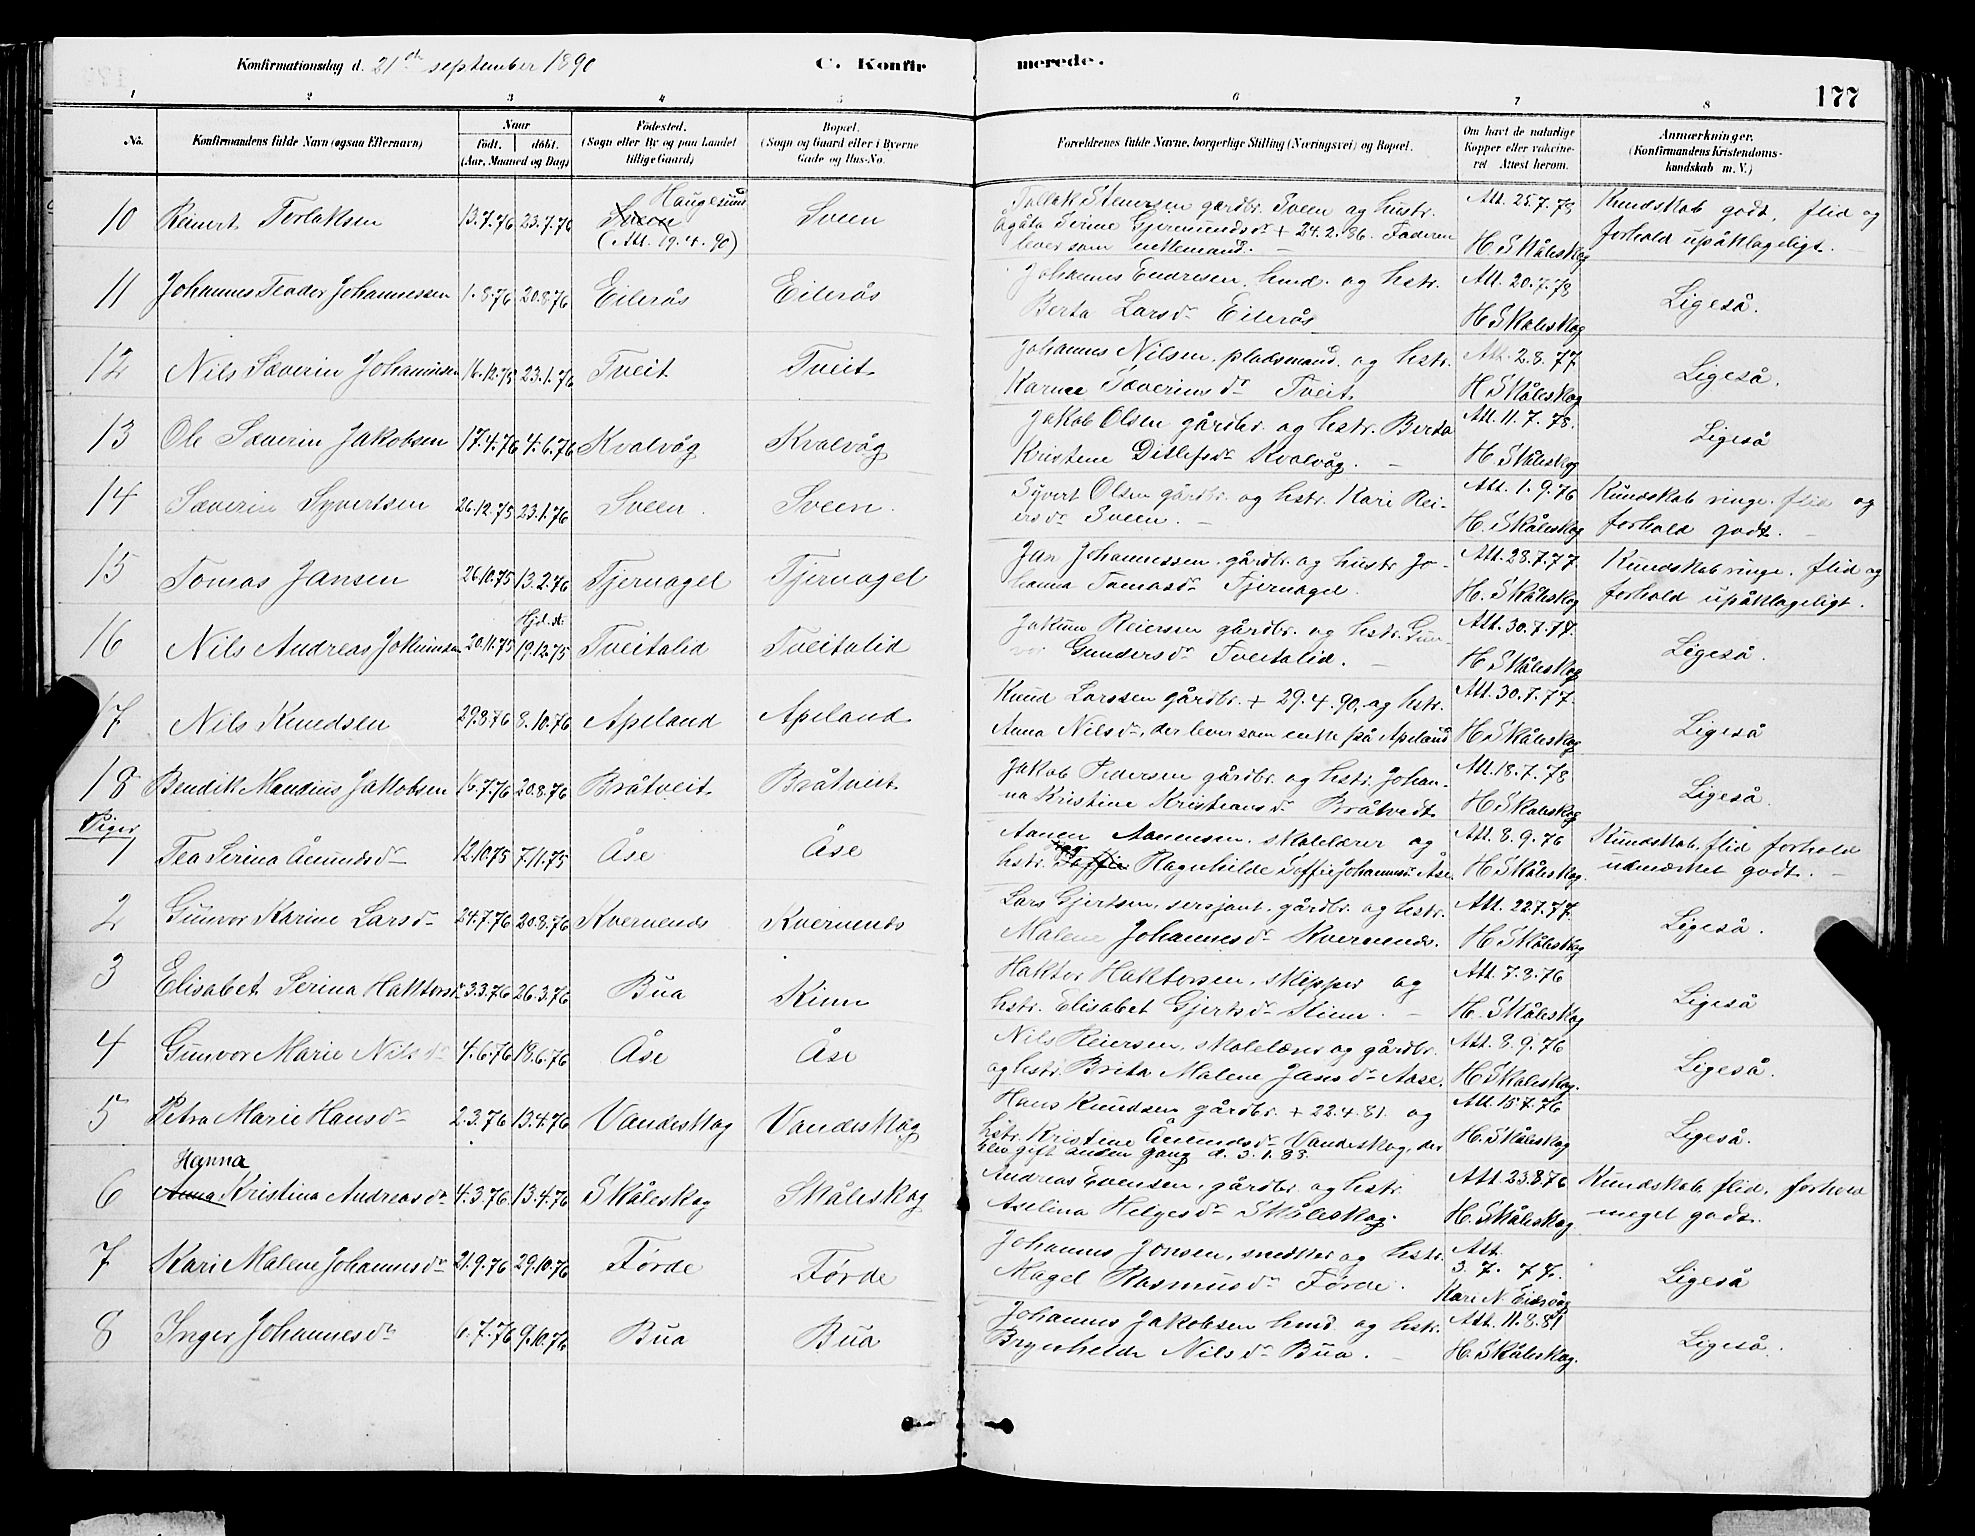 Konfirmationsdag d. 21de september 1890 C. Konfirmerede. 177
1 2 3 4 5 6 7 8
No. Konfirmandens fulde Navn (ogsaa Efternavn) Naar Født. døbt. (Aar, Maaned og Dag) Fødested. (Sogn eller By og paa Landet tillige Gaard) Bopæl. (Sogn og Gaard eller i Byerne Gade og Hus-No. Forældrenes fulde Navne, borgerlige Stilling (Næringsvei) og Bopæl. Om havt de naturlige Kopper eller vakcineret Attest herom. Anmærkninger. (Konfirmandens Kristendomskundskab m. V.)
10 Reinert Torlaksen 13.7.76 23.7.76 Haugesund Sveen (Att. 19.4.90) Sveen
Gjermundsdr + 24.2.86. Faderen
lever som enkemand. Att. 25.7.78 H. Skåleskog Kundskab godt, flid og
forhold upåklageligt.
11 Johannes Teodor Johannessen 1.8.76 20.8.76 Eilerås Eilerås Johannes Endresen, hmd. og hstr.
Berta Larsdr Eilerås Att. 20.7.78 H Skåleskog Ligeså.
12 Nils Sæverin Johannesen 16.12.75 23.1.76 Tveit Tveit Johannes Nilsen, pladsmand. og hstr.
Karine Sæverinsdr Tveit. Att. 2.8.77 H Skåleskog Ligeså.
13 Ole Sæverin Jakobsen 17.4.76 4.6.76 Kvalvåg Kvalvåg Jakob Olsen gårdbr. og hstr. Berta
Kristene Ditlefsdr Kvalvåg. Att. 11.7.78. H. Skåleskog Ligeså
14 Sæverin Syvertsen 26.12.75 23.1.76 Sveen. Sveen. Syvert Olsen gårdbr. og hstr. Kari Rei-
ersdr Sveen. Att. 1.9.76 H. Skåleskog Kundskab ringe. flid og
forhold godt.
15 Tomas Jansen 26.10.75 13.2.76 Tjernagel Tjernagel Jan Johannessen, gårdbr. og hustr Jo-
hanna Tomasdr Tjernagel. Att. 28.7.77. H. Skåleskog Kundskab ringe. flid og
forhold upåklageligt.
16 Nils Andreas Jokumsen 20.11.75 Hjd. d: 19.12.75 Tveitalid Tveitalid Jokum Reiersen gårdbr. og hstr. Gun-
vor Gundersdr Tveitalid. Att. 30.7.77. H Skåleskog Ligeså.
17 Nils Knudsen 29.8.76 8.10.76 Apeland Apeland Knud Larssen gårdbr. + 29.4.90. og hstr.
Anna Nilsdr, der lever som enke på Apeland Att. 30.7.77. H Skåleskog Ligeså
18 Bendik Mandius Jakobsen 16.7.76 20.8.76 Bråtveit Bråtveit Jakob Pedersen gårdbr. og hstr. Johan-
na Kristine Kristiansdr Bråtvedt Att. 18.7.78 H Skåleskog Ligeså.
Piger
1 Tea Serina Åmundsdr 12.10.75 7.11.75 Åse Åse Aanen Aanensen, skolelærer og
hstr. Ragnhilde Soffie Johannesdr Åse Att. 8.9.76 H Skåleskog. Kundskab, flid forhold
udmærket godt.
2 Gunvor Karine Larsdr 24.7.76 20.8.76 Kvernenes Kvernenes Lars Gjertsen, sersjant, gårdbr. og hstr.
Malene Johannesdr Kvernenes. Att. 22.7.77. H Skåleskog Ligeså.
3 Elisabet Serina Haktorsdr 3.3.76 26.3.76 Bua Kinn Haktor Haktorsen, skipper og
hstr. Elisabet Gjertsdr Kinn. Att. 7.8.76 H. Skåleskog Ligeså
4 Gunvor Marie Nilsdr 4.6.76 18.6.76 Åse Åse Nils Reiersen, skolelærer og gårdbr.
og hstr. Brita Malene Jansdr Aase. Att. 8.9.76 H Skåleskog. Ligeså.
5 Petra Marie Hansdr 2.3.76 13.4.76 Vandeskog Vandeskog Hans Knudsen gårdbr. + 22.4.81. og
hstr. Kristine Åmundsdr Vandeskog, der
blev gift anden gang d. 3.1.88. Att. 15.7.76 H. Skåleskog Ligeså.
6 Hanna Anna Kristina Andreasdr 4.3.76 13.4.76 Skåleskog Skåleskog Andreas Evensen, gårdbr og hstr.
Axelina Helgesdr Skåleskog. Att. 23.8.76 H. Skåleskog Kundskab, flid, forhold
meget godt.
7 Kari Malene Johannesdr 21.9.76 29.10.76 Førde Førde Johannes Jonsen, snedker og hstr
Magel Rasmusdr Førde. Att. 3.7.77. Kari N. Eidsvåg Ligeså
8 Inger Johannesdr 6.7.76 9.10.76 Bua Bua Johannes Jakobsen hmd. og hstr.
Nilsdr Bua. Att. 11.8.81 H. Skåleskog. Ligeså.